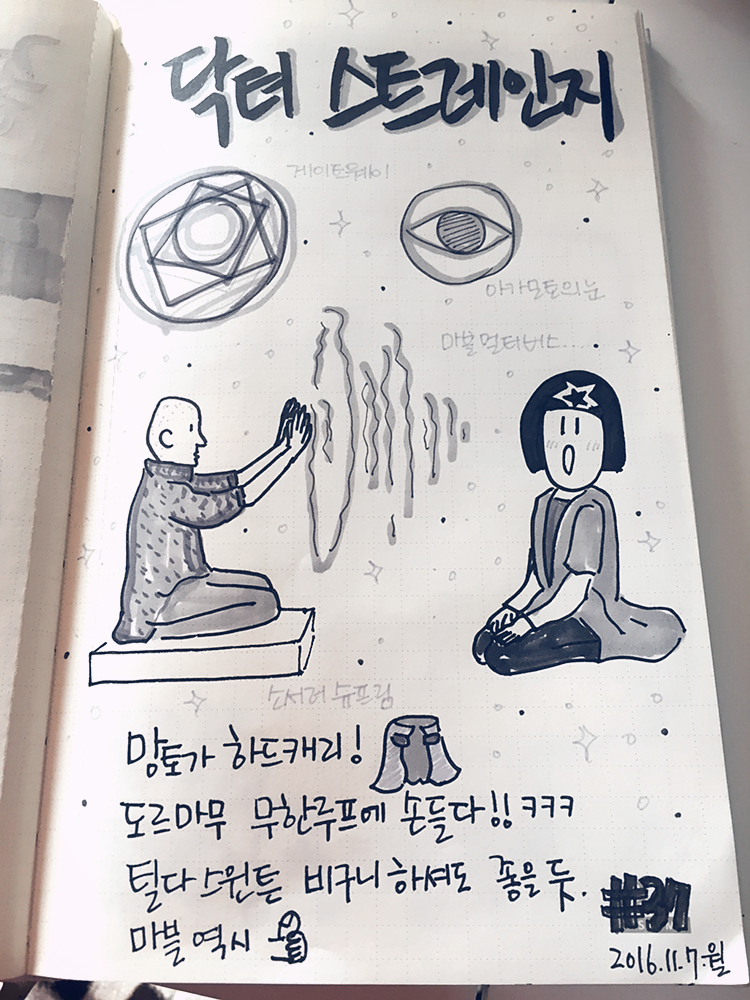 닥터 스트레인지
게이트웨이
아가모토의눈
마블멀티버스...
소서러 슈프림
망토가 하드캐리!
도르마무 무한루프에 손들다!! ㅋㅋㅋ
틸다스윈튼 비구니하셔도 좋을듯.
마블역시
#37
2016.11.7.월